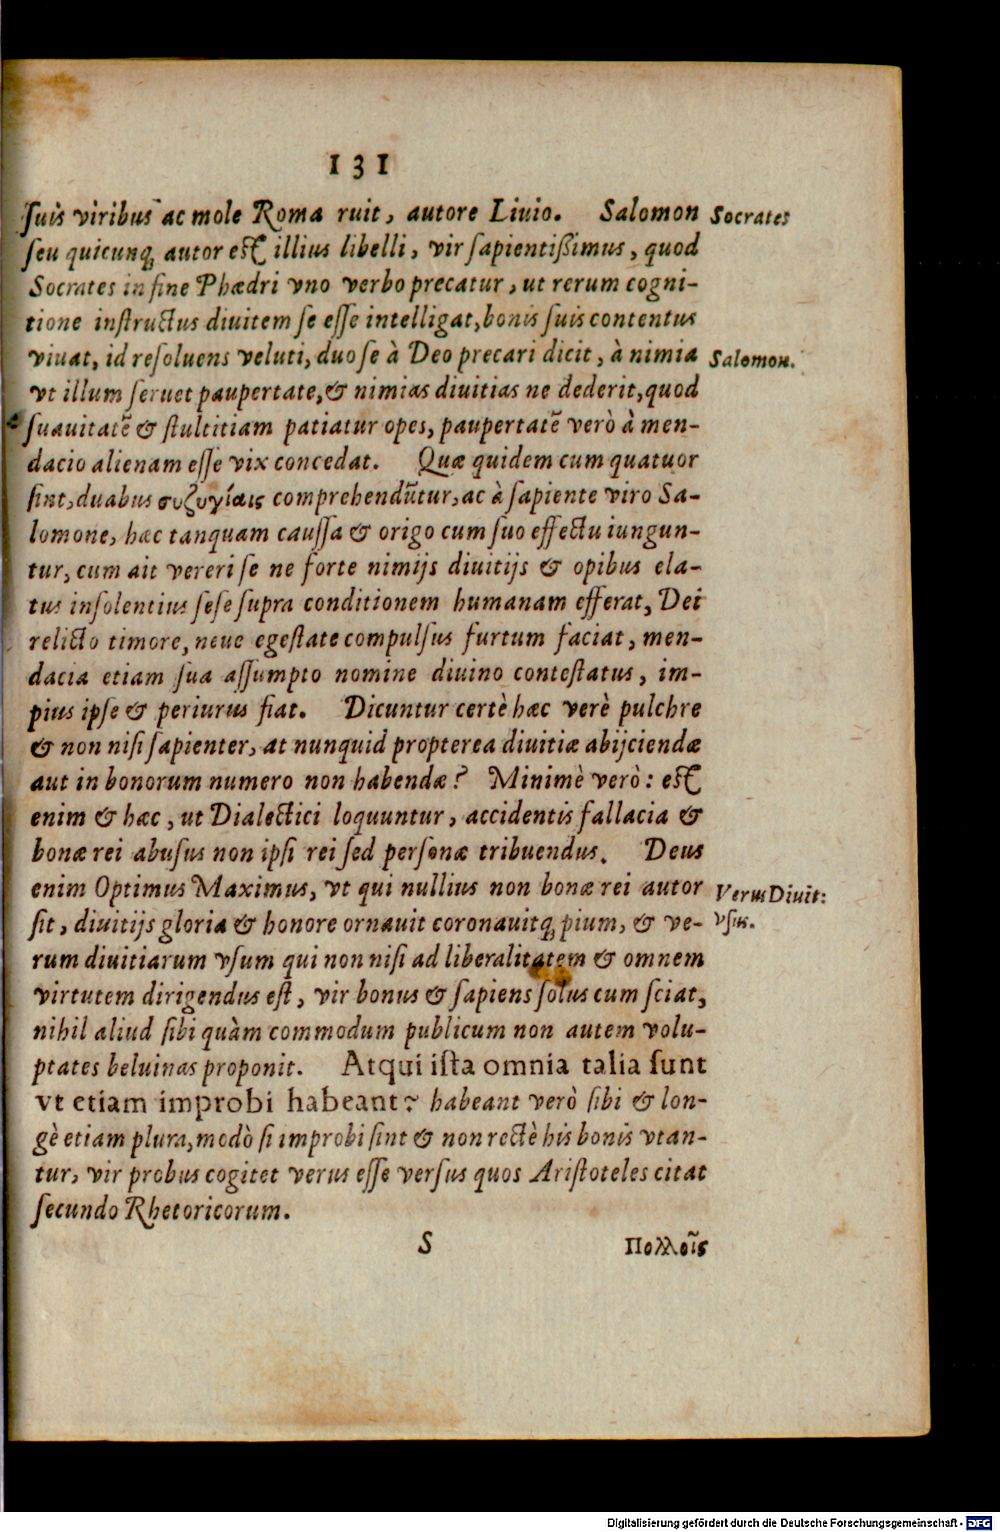 131
ſuis viribus ac mole Roma ruit, autore Liuio. Salomon
Socrates
ſeu quicunq́ autor eſt illius libelli, vir ſapientißimus, quod
Socrates in fine Phædri vno verbo precatur, ut rerum cogni-
tione inſtructus diuitem ſe eſſe intelligat, bonis ſuis contentus
viuat, id reſoluens veluti, duo ſe à Deo precari dicit, à nimia
Salomon.
vt illum ſeruet paupertate, & nimias diuitias ne dederit, quod
ſuauitatẽ & ſtultitiam patiatur opes, paupertatẽ verò à men-
dacio alienam eſſe vix concedat. Quæ quidem cum quatuor
ſint, duabus συζυγίαις comprehendũtur, ac à ſapiente viro Sa-
lomone, hæc tanquam cauſſa & origo cum ſuo effectu iungun-
tur, cum ait vereri ſe ne forte nimijs diuitijs & opibus ela-
tus inſolentius ſeſe ſupra conditionem humanam efferat, Dei
relicto timore, neue egeſtate compulſus furtum faciat, men-
dacia etiam ſua aſſumpto nomine diuino conteſtatus, im-
pius ipſe & periurus fiat. Dicuntur certè hæc verè pulchre
& non niſi ſapienter, at nunquid propterea diuitiæ abijciendæ
aut in bonorum numero non habendæ? Minimè verò: eſt
enim & hæc, ut Dialectici loquuntur, accidentis fallacia &
bonæ rei abuſus non ipſi rei ſed perſonæ tribuendus. Deus
enim Optimus Maximus, vt qui nullius non bonæ rei autor
Verus Diuit:
ſit, diuitijs gloria & honore ornauit coronauitq́ pium, & ve-
vſus.
rum diuitiarum vſum qui non niſi ad liberalitatem & omnem
virtutem dirigendus eſt, vir bonus & ſapiens ſolus cum ſciat,
nihil aliud ſibi quàm commodum publicum non autem volu-
ptates beluinas proponit. Atqui iſta omnia talia ſunt
vt etiam improbi habeant? habeant verò ſibi & lon-
gè etiam plura, modò ſi improbi ſint & non rectè his bonis vtan-
tur, vir probus cogitet verus eſſe verſus quos Ariſtoteles citat
ſecundo Rhetoricorum.
S
Πολλοῖς
Digitalisierung gefördert durch die Deutsche Forschungsgemeinschaft - DFG